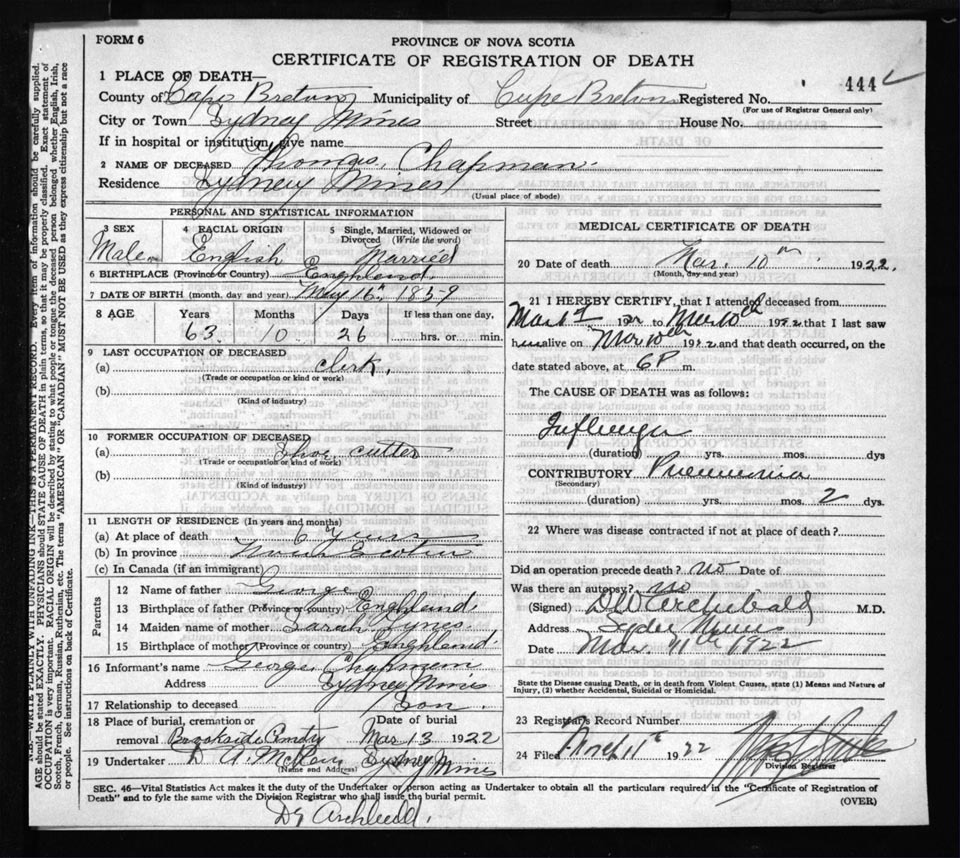 FORM 6
PROVINCE OF NOVA SCOTIA
CERTIFICATE OF REGISTRATION OF DEATH
1 PLACE OF DEATH—
County of Cape Breton Municipality of Cape Breton Registered No. 444
(For use of Registrar General only)
City or Town Sydney Mines Street House No.
If in hospital or institution, give name
2 NAME OF DECEASED Thomas Chapman
Residence Sydney Mines
(Usual place of abode)
PERSONAL AND STATISTICAL INFORMATION
3 SEX 4 RACIAL ORIGIN 5 Single, Married, Widowed or Divorced (Write the word)
Male English Married
6 BIRTHPLACE (Province or Country) Enghland
7 DATE OF BIRTH (month, day and year) May 16th 1859
8 AGE Years Months Days If less than one day,
63 10 26 hrs. or min.
9 LAST OCCUPATION OF DECEASED
(a) Clerk
(Trade or occupation or kind or work)
(b)
(Kind of industry)
10 FORMER OCCUPATION OF DECEASED
(a) cutter
(Trade or occupation or kind of work)
(b)
(Kind of industry)
11 LENGTH OF RESIDENCE (In years and months)
(a) At place of death 6 Years
(b) In province Nova Scotia
(c) In Canada (if an immigrant)
Parents
12 Name of father George
13 Birthplace of father (Province or country) Enghland
14 Maiden name of mother Sarah Synes
15 Birthplace of mother (Province or country) Enghland
16 Informant's name George Chapman
Address Sydney Mines
17 Relationship to deceased Son
18 Place of burial, cremation or removal Date of burial
Brookside Mar 13 1922
19 Undertaker D A Sydney Mines
(Name and Address)
MEDICAL CERTIFICATE OF DEATH
20 Date of death Mar. 10th 1922.
(Month, day and year)
21 I HEREBY CERTIFY, that I attended deceased from
to Mar 10th 1922 that I last saw
him alive on Mar 10th 1922 and that death occurred, on the
date stated above, at 6 P m.
The CAUSE OF DEATH was as follows:
Influenza
(duration) yrs. mos. dys
CONTRIBUTORY Pneumonia
(Secondary)
(duration) yrs. mos. 2 dys.
22 Where was disease contracted if not at place of death?
Did an operation precede death? no Date of
Was there an autopsy? no
(Signed) DW Archibald M.D.
Address Sydney Mines
Date Mar. 11th 1922
State the Disease causing Death, or in death from Violent Causes, state (1) Means and Nature of
Injury, (2) whether Accidental, Suicidal or Homicidal.
23 Registrar's Record Number
24 Filed 11th 1922
Division Registrar
SEC. 46—Vital Statistics Act makes it the duty of the Undertaker or person acting as Undertaker to obtain all the particulars required in the "Certificate of Registration of
Death" and to fyle the same with the Division Registrar who shall issue the burial permit. (OVER)
Dr Archibald.
N.B.—WRITE PLAINLY WITH UNFADING INK—THIS IS A PERMANENT RECORD. Every item of information should be carefully supplied.
AGE should be stated EXACTLY. PHYSICIANS should STATE CAUSE OF DEATH in plain terms, so that it may be properly classified. Exact statement of
OCCUPATION is very important. RACIAL ORIGIN will be described by stating to what people or tongue the deceased person belonged whether English, Irish,
Scotch, French, German, Russian, Ruthenian, etc. The terms "AMERICAN" OR "CANADIAN" MUST NOT BE USED as they express citizenship but not a race
or people. See instructions on back of Certificate.